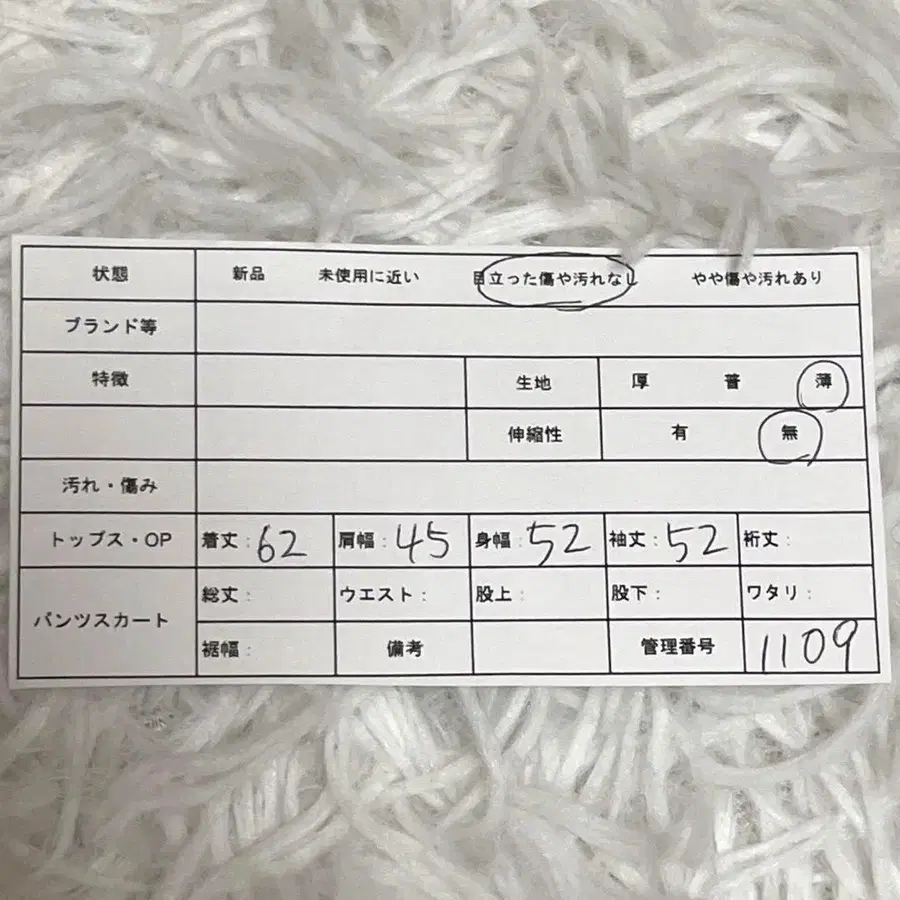 状態 新品 未使用に近い 目立った傷や汚れなし やや傷や汚れあり
ブランド等
特徴 生地 厚 普 薄
伸縮性 有 無
汚れ・傷み
トップス・OP 着丈：62 肩幅：45 身幅：52 袖丈：52 裄丈：
パンツスカート 総丈： ウエスト： 股上： 股下： ワタリ：
裾幅： 備考 管理番号 1109